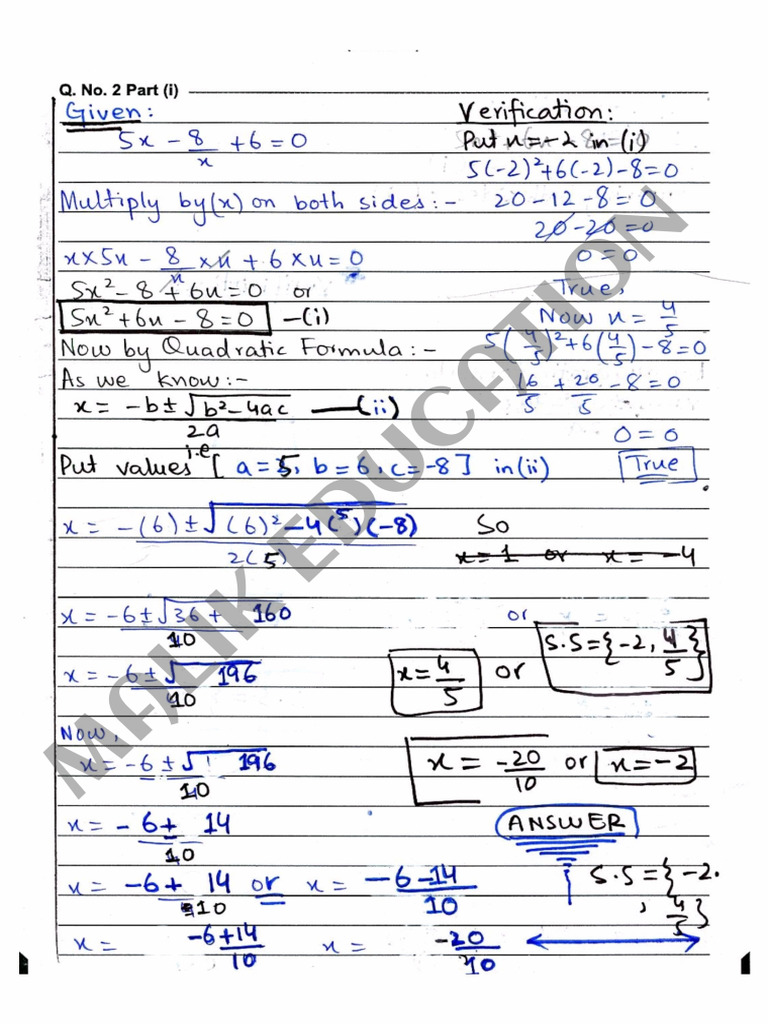 Q. No. 2 Part (i)
Given:
5x - 8/x + 6 = 0
Multiply by (x) on both sides:-
x × 5x - 8/x × x + 6 × x = 0
5x² - 8 + 6x = 0 or
5x² + 6x - 8 = 0 —(i)
Now by Quadratic Formula:-
As we know:-
x = -b ± √b² - 4ac / 2a —(ii)
i.e
Put values [a = 5, b = 6, c = -8] in (ii)
x = -(6) ± √(6)² - 4(5)(-8) / 2(5)
x = -6 ± √36 + 160 / 10
x = -6 ± √196 / 10
Now,
x = -6 ± √196 / 10
x = -6 ± 14 / 10
x = -6 + 14 / 10 or x = -6 - 14 / 10
x = -6 + 14 / 10 x = -20 / 10
Verification:
Put x = -2 in (i)
5(-2)² + 6(-2) - 8 = 0
20 - 12 - 8 = 0
20 - 20 = 0
0 = 0
True,
Now x = 4/5
5(4/5)² + 6(4/5) - 8 = 0
16/5 + 20/5 - 8 = 0
0 = 0
True
So
x = 1 or x = -4
or
x = 4/5 or S.S = {-2, 4/5}
x = -20/10 or x = -2
ANSWER
S.S = {-2.
, 4/5}
MALIK EDUCATION